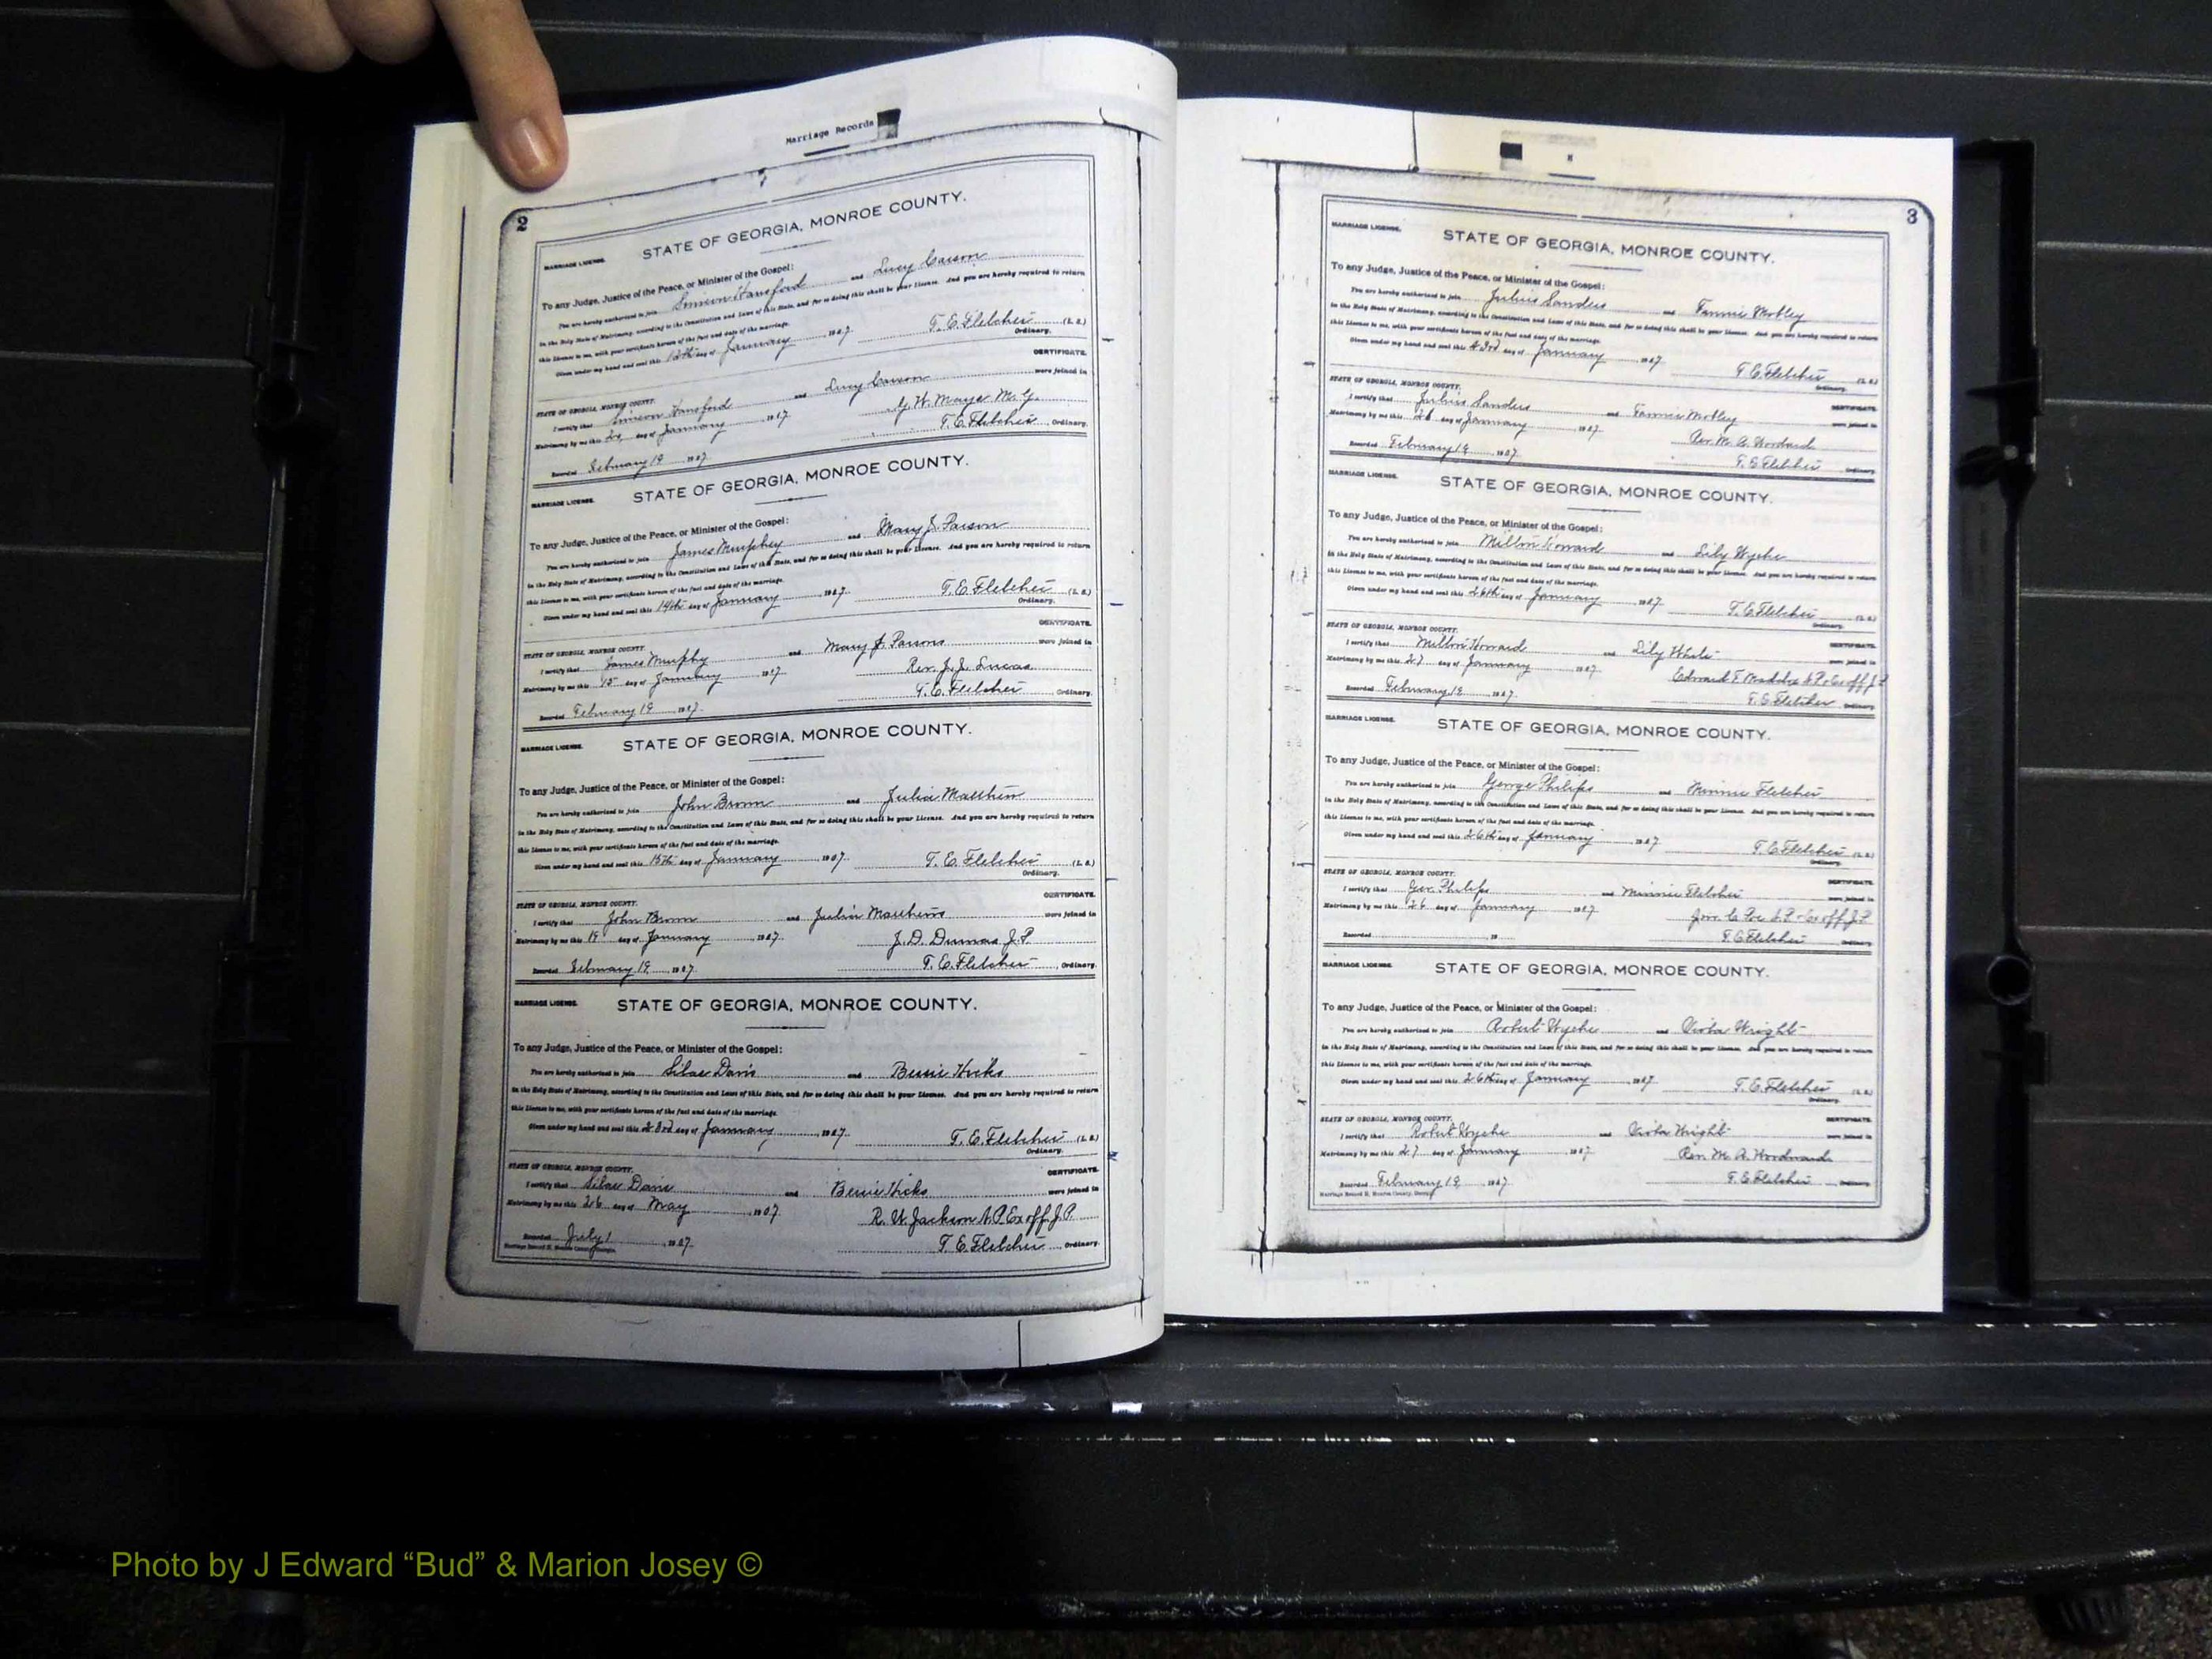 Marriage Records
2
MARRIAGE LICENSE.
STATE OF GEORGIA, MONROE COUNTY.
To any Judge, Justice of the Peace, or Minister of the Gospel:
You are hereby authorized to join Simeon Hansford and Lucy Carson
in the Holy State of Matrimony, according to the Constitution and Laws of this State, and for so doing this shall be your License. And you are hereby required to return
this License to me, with your certificate hereon of the fact and date of the marriage.
Given under my hand and seal this 12th day of January 1907. T. E. Fletcher (L. S.)
Ordinary.
CERTIFICATE.
STATE OF GEORGIA, MONROE COUNTY.
I certify that Simeon Hansford and Lucy Carson were joined in
Matrimony by me this day of January 1907 G. W. Mays M. G.
Recorded February 19 1907. T. E. Fletcher Ordinary.
MARRIAGE LICENSE.
STATE OF GEORGIA, MONROE COUNTY.
To any Judge, Justice of the Peace, or Minister of the Gospel:
You are hereby authorized to join James Murphey and Mary J. Parson
in the Holy State of Matrimony, according to the Constitution and Laws of this State, and for so doing this shall be your License. And you are hereby required to return
this License to me, with your certificate hereon of the fact and date of the marriage.
Given under my hand and seal this 14th day of January 1907. T. E. Fletcher (L. S.)
Ordinary.
CERTIFICATE.
STATE OF GEORGIA, MONROE COUNTY.
I certify that James Murphy and Mary J. Parsons were joined in
Matrimony by me this 15 day of January 1907 Rev. J. J. Lucas
Recorded February 19 1907. T. E. Fletcher Ordinary.
MARRIAGE LICENSE.
STATE OF GEORGIA, MONROE COUNTY.
To any Judge, Justice of the Peace, or Minister of the Gospel:
You are hereby authorized to join John Brown and Julia Matthew
in the Holy State of Matrimony, according to the Constitution and Laws of this State, and for so doing this shall be your License. And you are hereby required to return
this License to me, with your certificate hereon of the fact and date of the marriage.
Given under my hand and seal this 15th day of January 1907. T. E. Fletcher (L. S.)
Ordinary.
CERTIFICATE.
STATE OF GEORGIA, MONROE COUNTY.
I certify that John Brown and Julia Matthews were joined in
Matrimony by me this 19 day of January 1907. J. D. Dumas J. P.
Recorded February 19 1907. T. E. Fletcher Ordinary.
MARRIAGE LICENSE.
STATE OF GEORGIA, MONROE COUNTY.
To any Judge, Justice of the Peace, or Minister of the Gospel:
You are hereby authorized to join Silas Davis and Bessie Hicks
in the Holy State of Matrimony, according to the Constitution and Laws of this State, and for so doing this shall be your License. And you are hereby required to return
this License to me, with your certificate hereon of the fact and date of the marriage.
Given under my hand and seal this 23rd day of January 1907. T. E. Fletcher (L. S.)
Ordinary.
CERTIFICATE.
STATE OF GEORGIA, MONROE COUNTY.
I certify that Silas Davis and Bessie Hicks were joined in
Matrimony by me this 26 day of May 1907 R. W. Jackson N. P. Ex off. J. P.
Recorded July 1 1907. T. E. Fletcher Ordinary.
Marriage Record H, Monroe County, Georgia.
3
MARRIAGE LICENSE.
STATE OF GEORGIA, MONROE COUNTY.
To any Judge, Justice of the Peace, or Minister of the Gospel:
You are hereby authorized to join Julius Sanders and Fannie Mobley
in the Holy State of Matrimony, according to the Constitution and Laws of this State, and for so doing this shall be your License. And you are hereby required to return
this License to me, with your certificate hereon of the fact and date of the marriage.
Given under my hand and seal this 23rd day of January 1907 T. E. Fletcher (L. S.)
Ordinary.
STATE OF GEORGIA, MONROE COUNTY. CERTIFICATE.
I certify that Julius Sanders and Fannie Mobley were joined in
Matrimony by me this day of January 1907. Rev. M. A. Woodard
Recorded February 19 1907. T. E. Fletcher Ordinary.
MARRIAGE LICENSE.
STATE OF GEORGIA, MONROE COUNTY.
To any Judge, Justice of the Peace, or Minister of the Gospel:
You are hereby authorized to join Milton Howard and Lily Wyche
in the Holy State of Matrimony, according to the Constitution and Laws of this State, and for so doing this shall be your License. And you are hereby required to return
this License to me, with your certificate hereon of the fact and date of the marriage.
Given under my hand and seal this 26th day of January 1907 T. E. Fletcher (L. S.)
Ordinary.
STATE OF GEORGIA, MONROE COUNTY. CERTIFICATE.
I certify that Milton Howard and Lily White were joined in
Matrimony by me this 27 day of January 1907. Edward T. Maddox N. P. & Ex off J. P.
Recorded February 19 1907. T. E. Fletcher Ordinary.
MARRIAGE LICENSE.
STATE OF GEORGIA, MONROE COUNTY.
To any Judge, Justice of the Peace, or Minister of the Gospel:
You are hereby authorized to join George Philips and Minnie Fletcher
in the Holy State of Matrimony, according to the Constitution and Laws of this State, and for so doing this shall be your License. And you are hereby required to return
this License to me, with your certificate hereon of the fact and date of the marriage.
Given under my hand and seal this 26th day of January 1907 T. E. Fletcher (L. S.)
Ordinary.
STATE OF GEORGIA, MONROE COUNTY. CERTIFICATE.
I certify that Geo. Philips and Minnie Fletcher were joined in
Matrimony by me this 26 day of January 1907 Poe N. P. & Ex off J. P.
Recorded 19 T. E. Fletcher Ordinary.
MARRIAGE LICENSE.
STATE OF GEORGIA, MONROE COUNTY.
To any Judge, Justice of the Peace, or Minister of the Gospel:
You are hereby authorized to join Robert Wyche and Viola Wright
in the Holy State of Matrimony, according to the Constitution and Laws of this State, and for so doing this shall be your License. And you are hereby required to return
this License to me, with your certificate hereon of the fact and date of the marriage.
Given under my hand and seal this 26th day of January 1907 T. E. Fletcher (L. S.)
Ordinary.
STATE OF GEORGIA, MONROE COUNTY. CERTIFICATE.
I certify that Robert Wyche and Viola Wright were joined in
Matrimony by me this 27 day of January 1907 Rev. M. A. Woodward
Recorded February 19, 1907. T. E. Fletcher Ordinary.
Marriage Record H, Monroe County, Georgia
Photo by J Edward “Bud” & Marion Josey ©